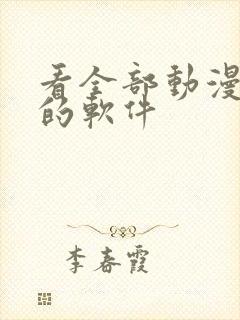 看全部動漫
的軟件
李春霞